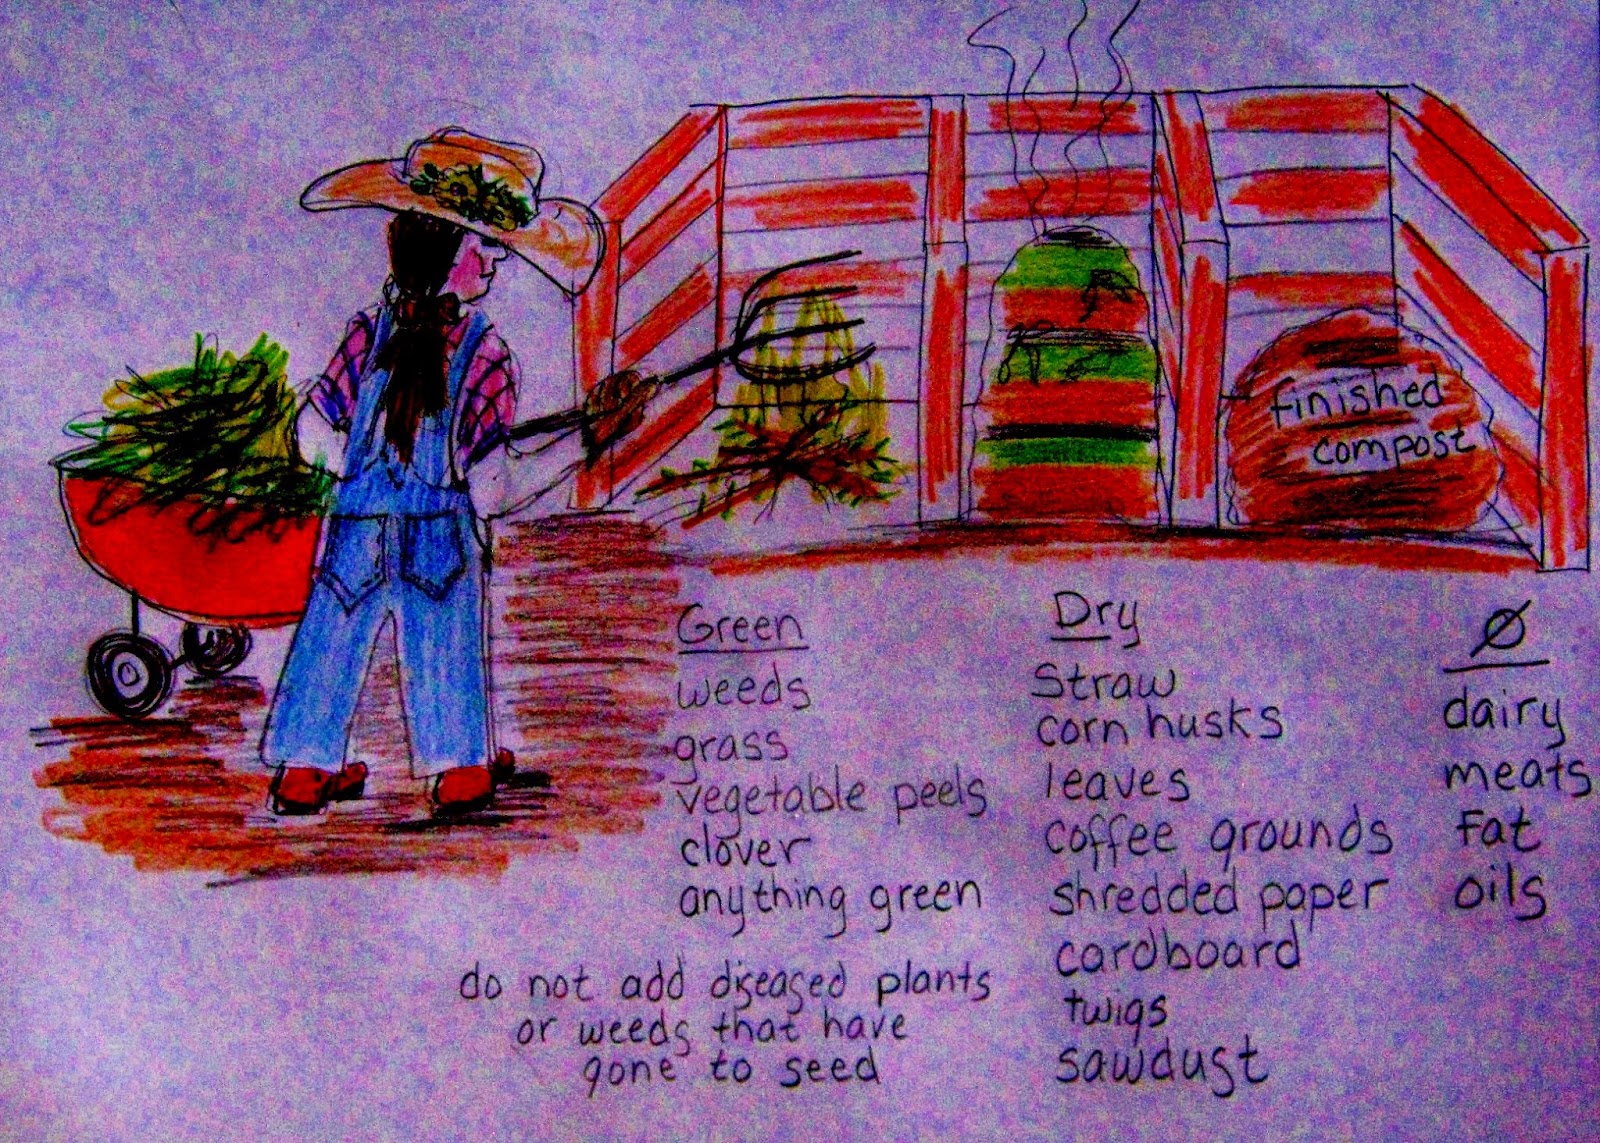 finished
compost
Green
weeds
grass
vegetable peels
clover
anything green
do not add diseased plants
or weeds that have
gone to seed
Dry
Straw
corn husks
leaves
coffee grounds
shredded paper
cardboard
twigs
sawdust
Ø
dairy
meats
Fat
oils